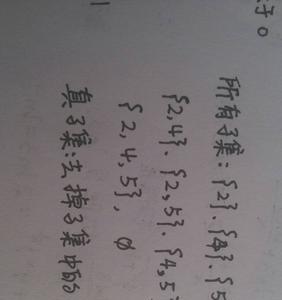 于 0
所有子集：{2}．{4}．{5
{2,4}．{2,5}．{4,5}
{2,4,5}，∅
真子集：去掉子集中的
1